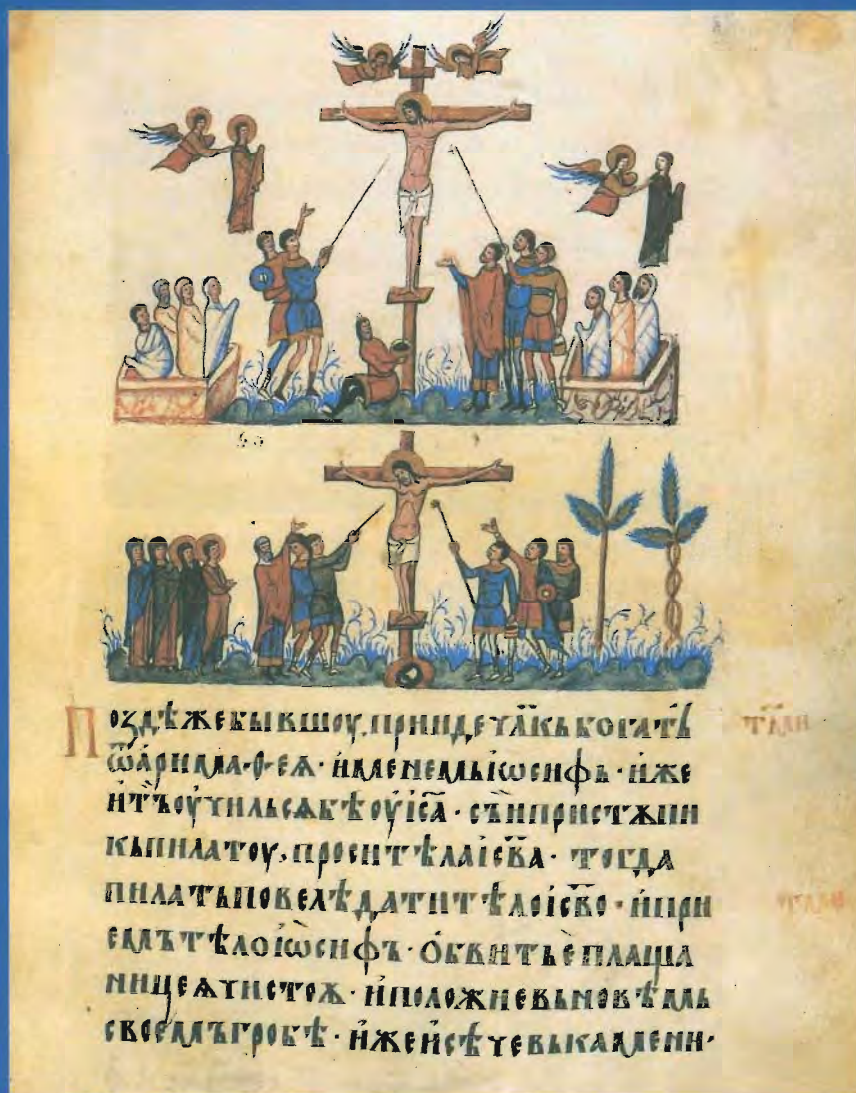 Поздѣжебывшоу, прииде ч҃лкь богат҄ь
ѿарима-ѳ-еѧ · и҆менемьі҆ѡсифь · и҆же
и҆тъоу҆чильсѧбѣоу҆і҆с҃а · съ҆ипристѫпи
кьпилатоу, проситѣлаі҆с҃ва · тогда
пилатьповелѣдатитѣлоі҆с҃во · и҆при
емътѣлоі҆ѡсифъ · о҆бвитье҆плаща
ницеѧчистоѫ · и҆положиевьновѣмь
своемъгробѣ · и҆жеи҆сѣчевькамени ·